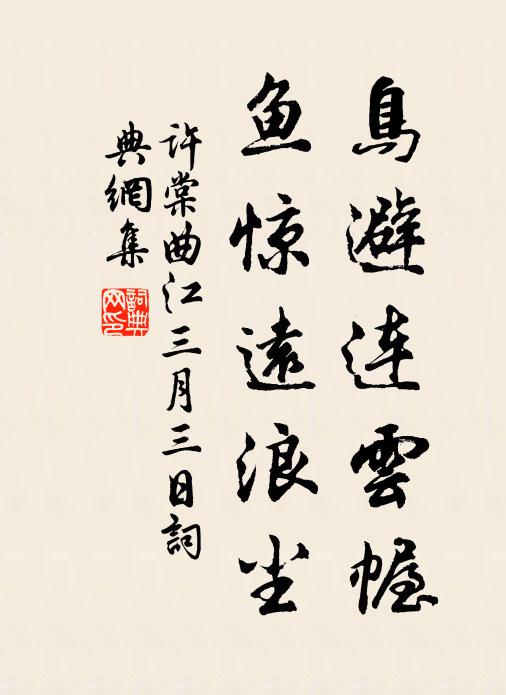 鳥避連雲幄
鱼惊遠浪尘
許棠曲江三月三日詞
典網集
詞典
网印